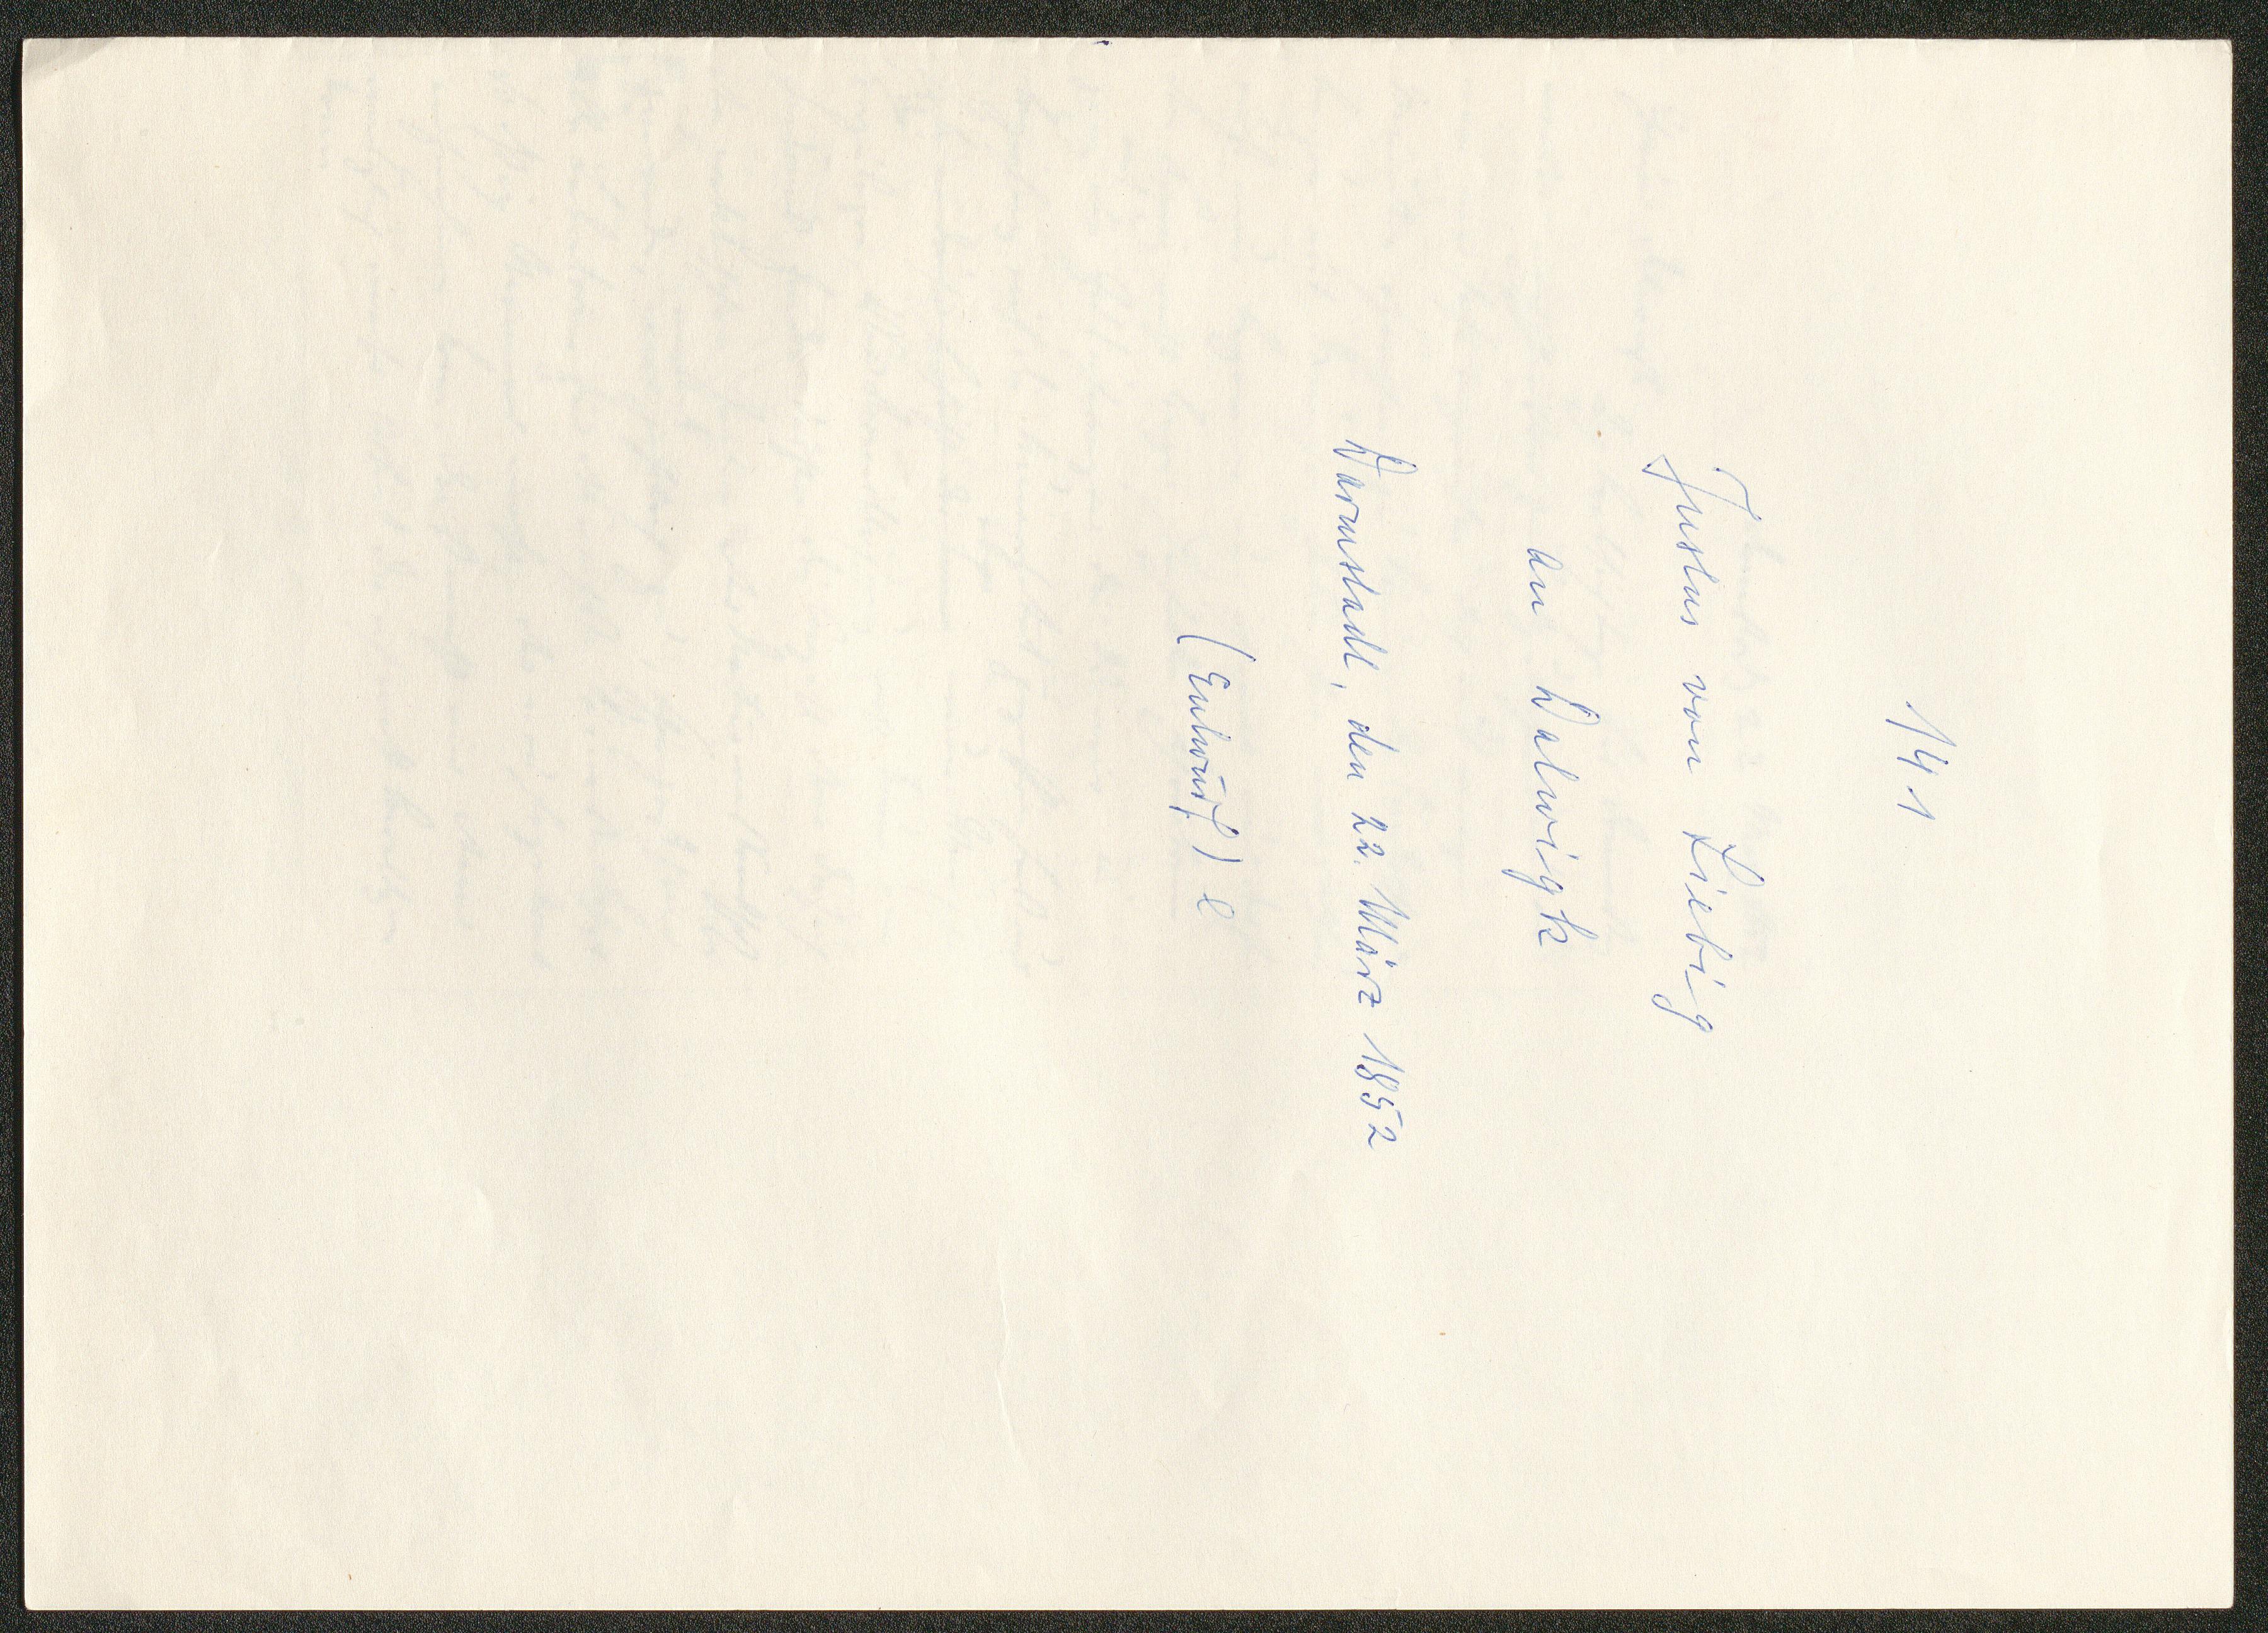 141
Justus von Liebig
an Dalwigk
Darmstadt, den 22. März 1852
(Entwurf) e